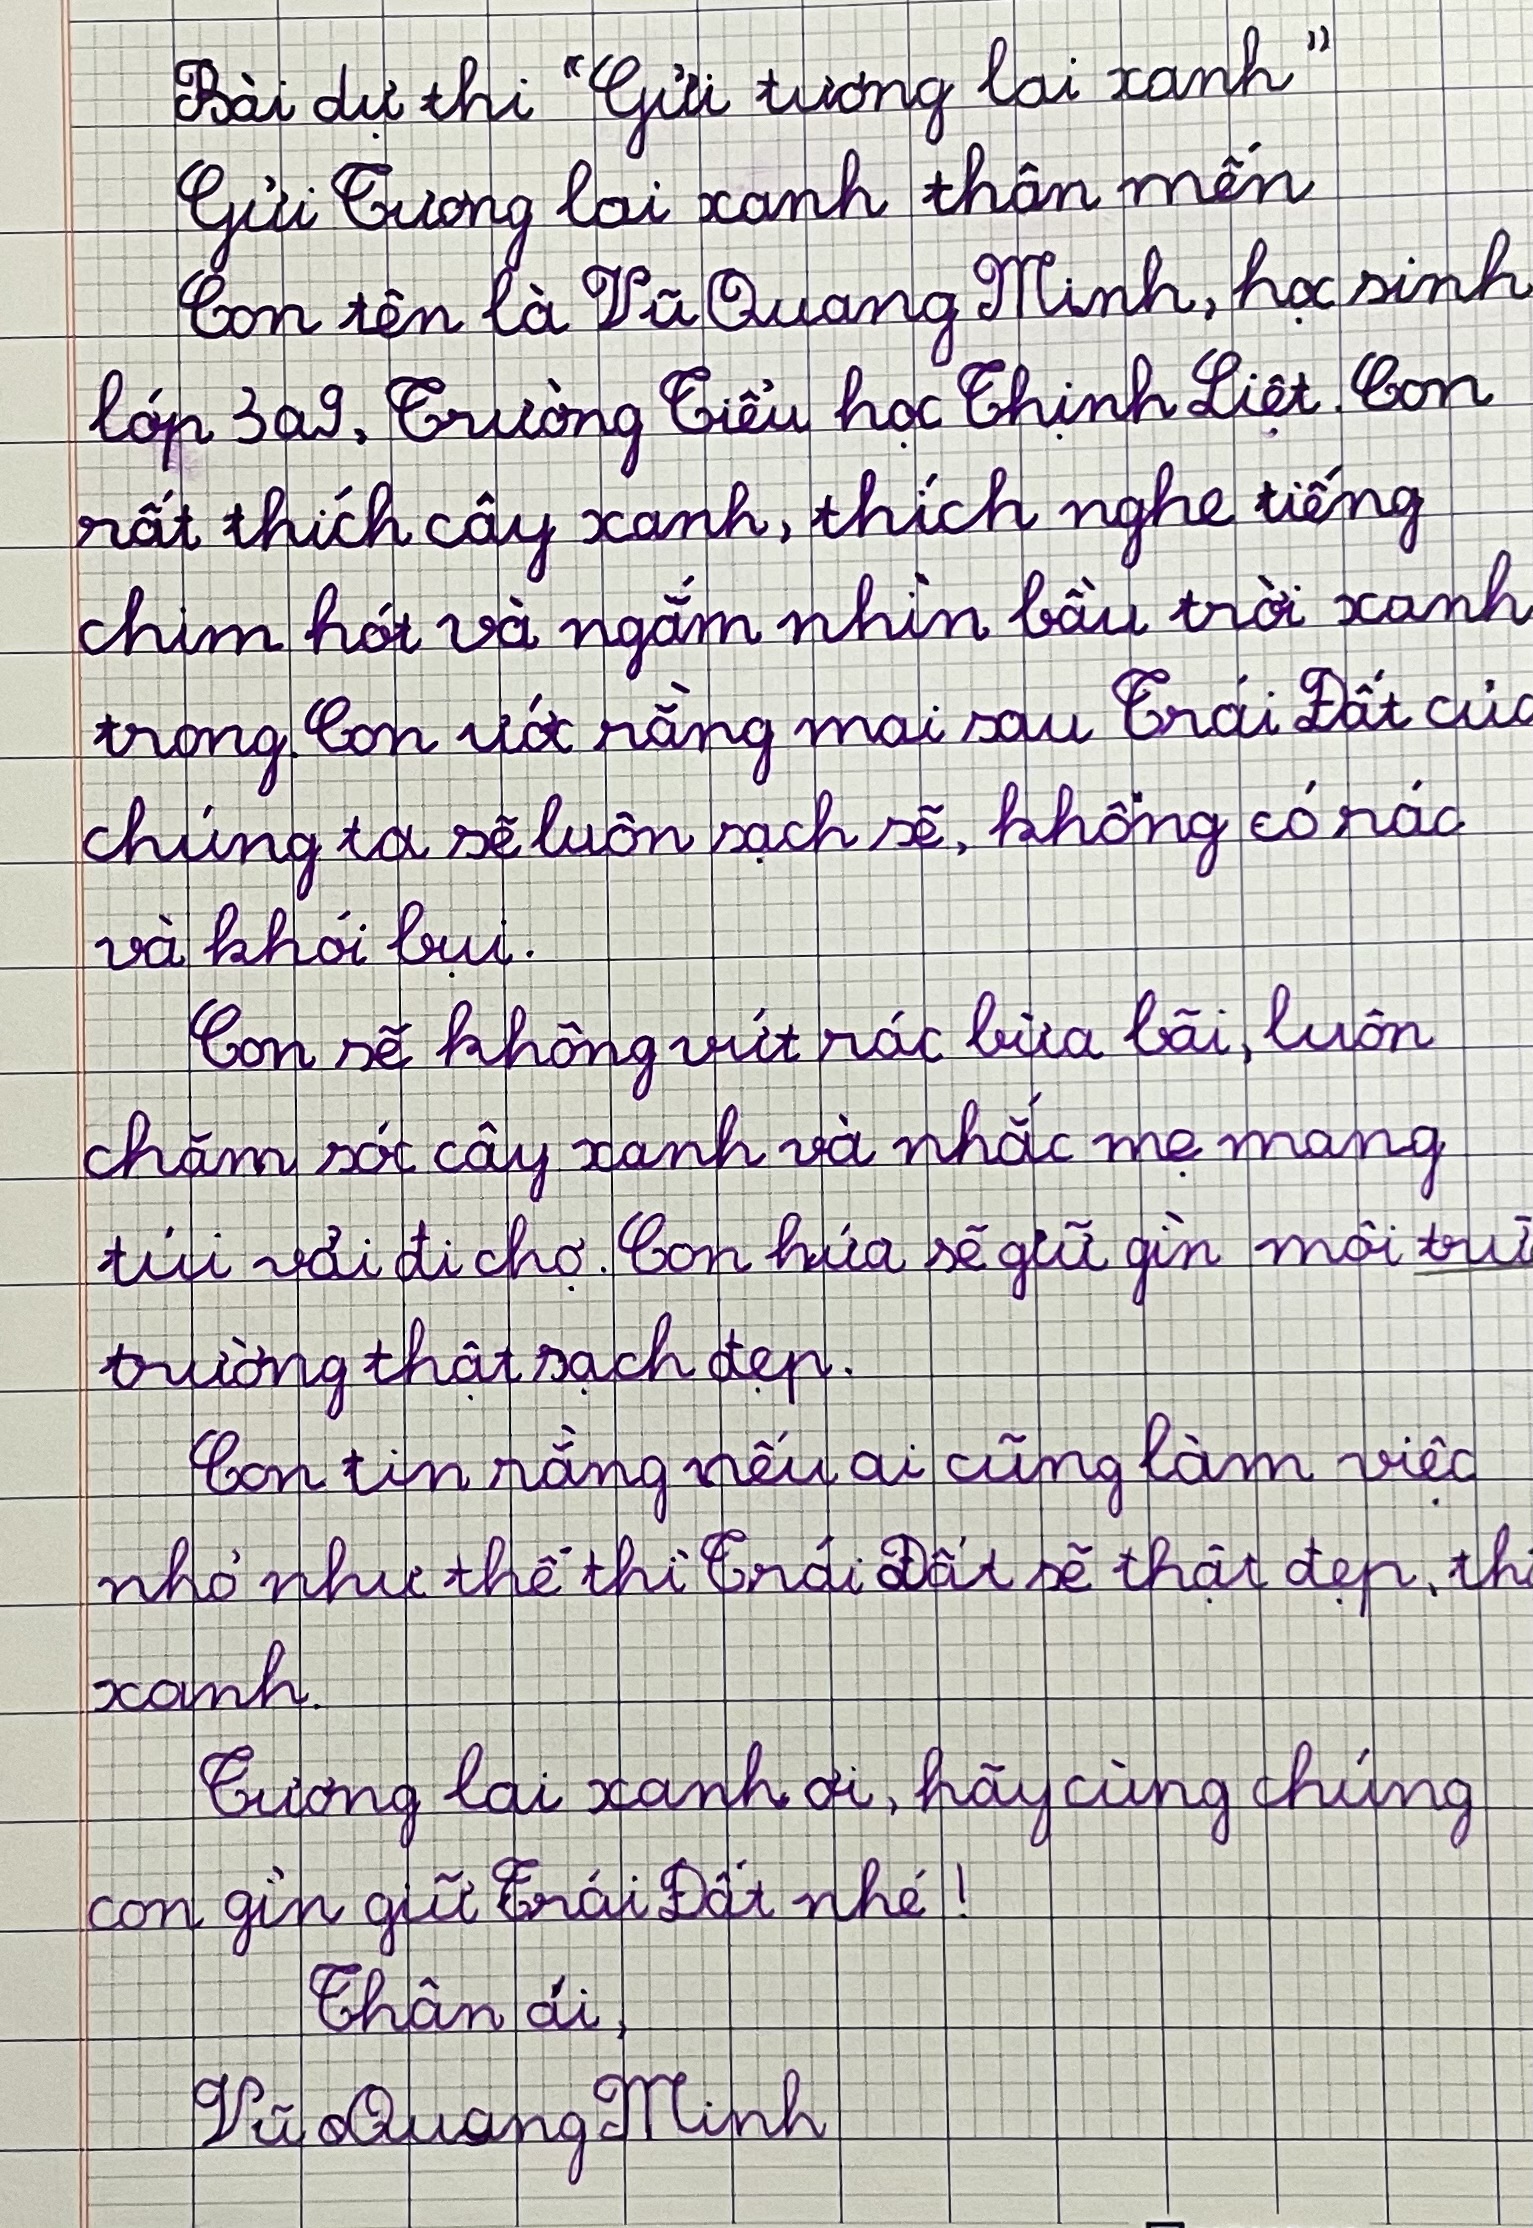 Bài dự thi "Gửi tương lai xanh"
Gửi Tương lai xanh thân mến
Con tên là Vũ Quang Minh, học sinh
lớp 3a9, Trường Tiểu học Thịnh Liệt. Con
rất thích cây xanh, thích nghe tiếng
chim hót và ngắm nhìn bầu trời xanh
trong. Con ước rằng mai sau Trái Đất của
chúng ta sẽ luôn sạch sẽ, không có rác
và khói bụi.
Con sẽ không vứt rác bừa bãi, luôn
chăm sóc cây xanh và nhắc mẹ mang
túi vải đi chợ. Con hứa sẽ giữ gìn môi
trường thật sạch đẹp.
Con tin rằng nếu ai cũng làm việc
nhỏ như thế thì Trái Đất sẽ thật đẹp,
xanh.
Tương lai xanh ơi, hãy cùng chúng
con gìn giữ Trái Đất nhé!
Thân ái,
Vũ Quang Minh